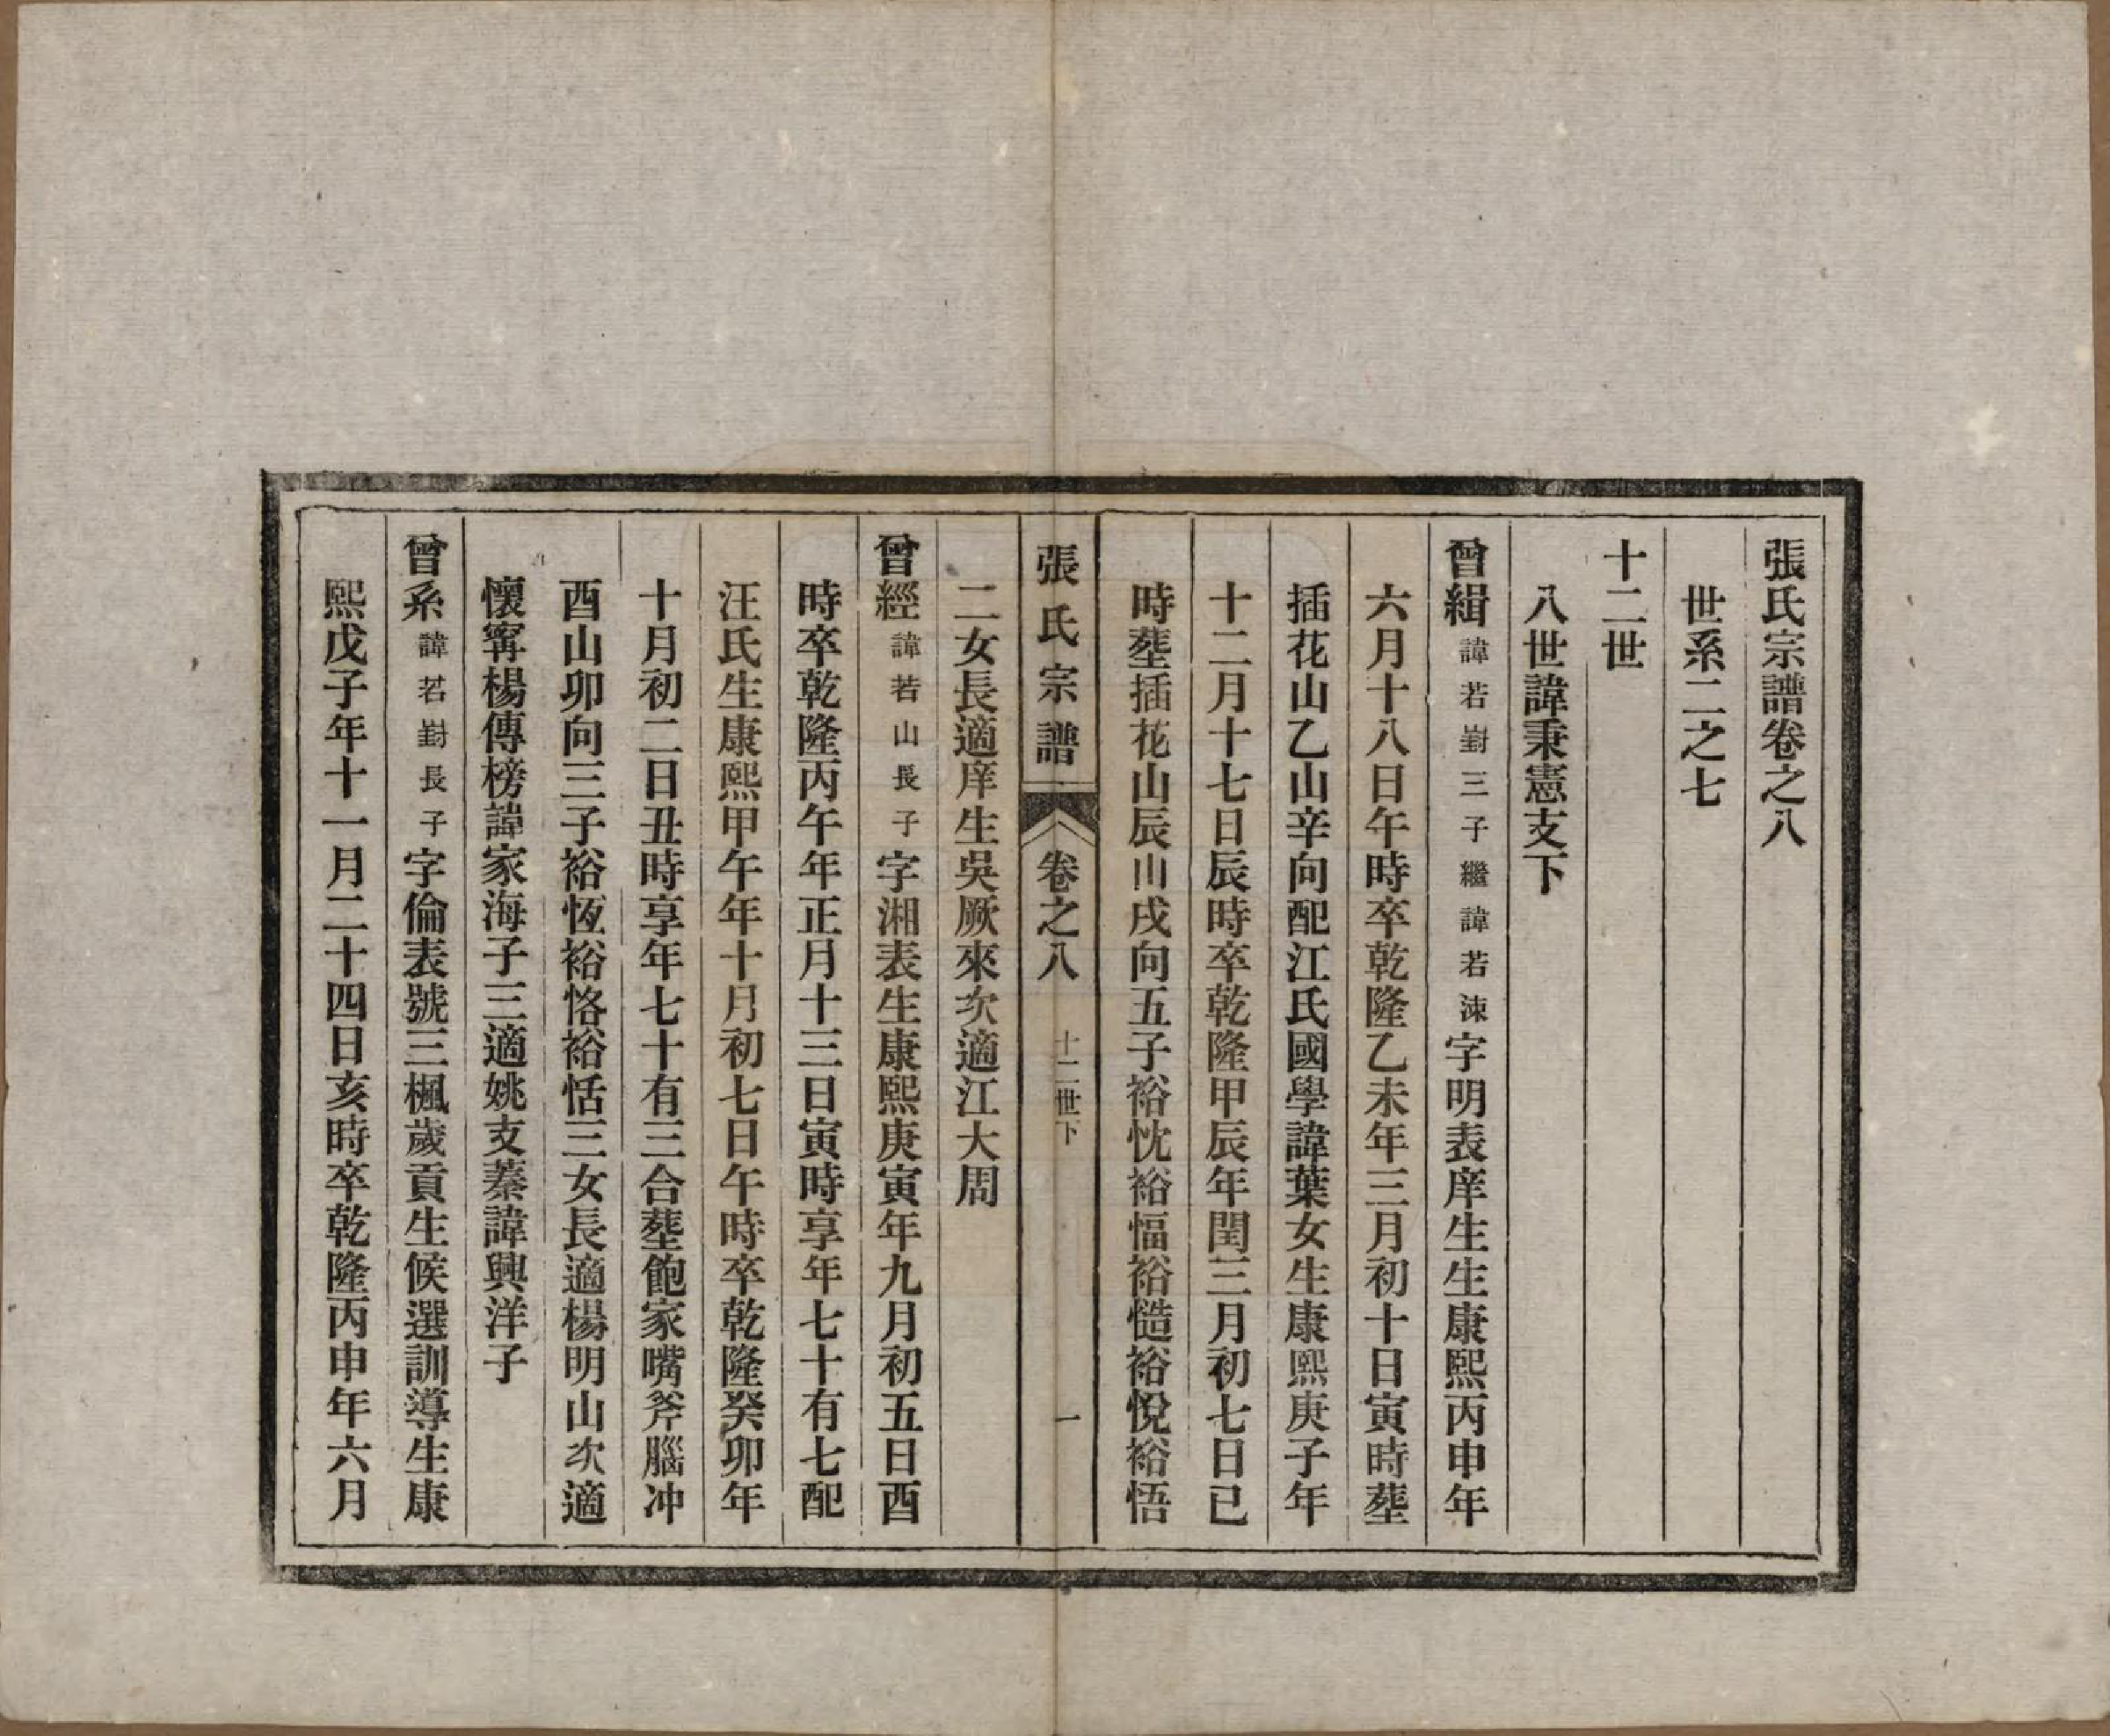 張氏宗譜卷之八
世系二之七
十二世
八世諱秉憲支下
曾緝諱若崶三子繼諱若涑字明表庠生生康熙丙申年
六月十八日午時卒乾隆乙未年三月初十日寅時塟
插花山乙山辛向配江氏國學諱葉女生康熙庚子年
十二月十七日辰時卒乾隆甲辰年閏三月初七日已
時塟插花山辰山戌向五子裕忱裕愊裕慥裕悅裕悟
張氏宗譜 卷之八 十二世下 一
二女長適庠生吳厥來次適江大周
曾經諱若山長子字湘表生康熙庚寅年九月初五日酉
時卒乾隆丙午年正月十三日寅時享年七十有七配
汪氏生康熙甲午年十月初七日午時卒乾隆癸卯年
十月初二日丑時享年七十有三合塟飽家嘴斧腦冲
酉山卯向三子裕恆裕恪裕恬三女長適楊明山次適
懷寗楊傳榜諱家海子三適姚支蓁諱興洋子
曾系諱若崶長子字倫表號三楓歲貢生候選訓導生康
熙戊子年十一月二十四日亥時卒乾隆丙申年六月